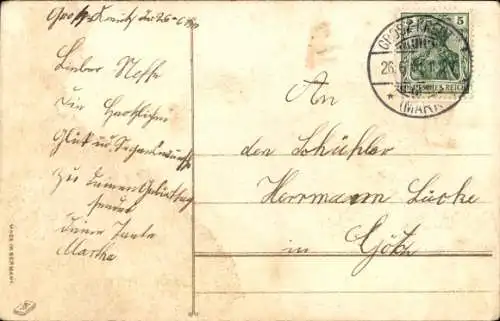 Gross Kreutz d. 26-6
Lieber Neffe
Die Herzlichsten
Glück u Segenswünsche
zu deinem Geburtstag
sendet
deine Tante
Martha
MADE IN GERMANY
An
den Schühler
Herrmann Lücke
in Götz
5
GROSS KREUTZ
26.
(MARK)
DEUTSCHES REICH